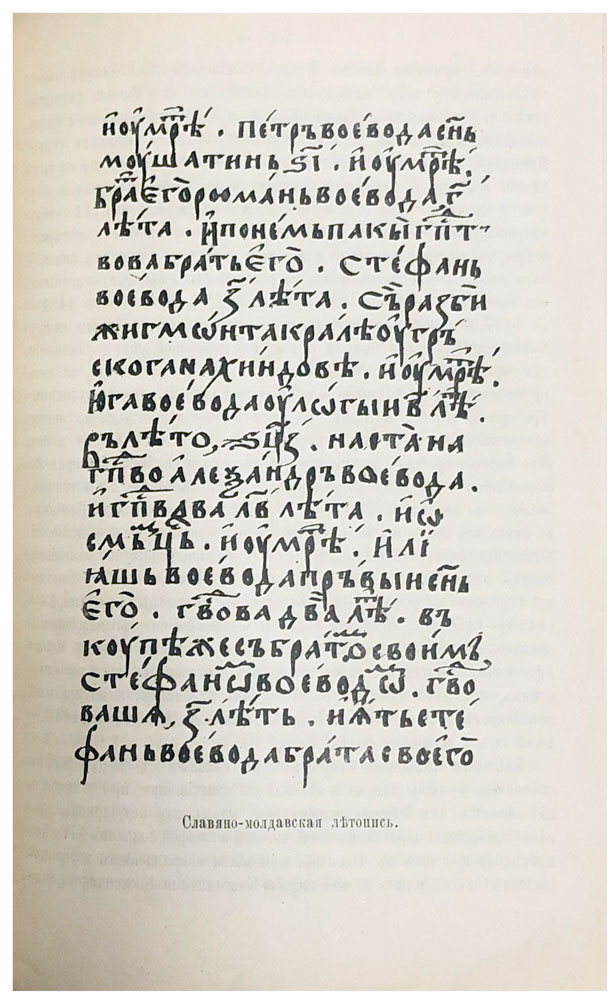 и҆оумрѣ . петрь воевода снь
моушатинь ѕ҃і . и҆оумрѣ .
бра е҆го рѡмань воевода г҃
лѣта . и҆ по немь пакы гп҃ⷭт
вова брать е҆го . стефань
воевода з҃ лѣта . съ разби
жигмѡнта кралѣ оугръ
скога на хиндовѣ . и҆оумрѣ .
юга воевода
рь лѣто , ѕ҃ц҃з . наста на
гп҃ⷭво алеѯандрь воевода .
и҆ гп҃ⷭвава л҃в лѣта . и҆ ѡ
смь мⷭ҇ць . и҆оумрѣ . и҆лї
ꙗшь воевода прьвыи снь
е҆го . гⷭ҇вова два лѣ . вь
коупѣ же съ братом своимь
стефаном воеводѡм . гⷭ҇во
ваша , з҃ лѣть . и҆ ѧть сте
фань воевода брата своего
Славяно-молдавская лѣтопись.